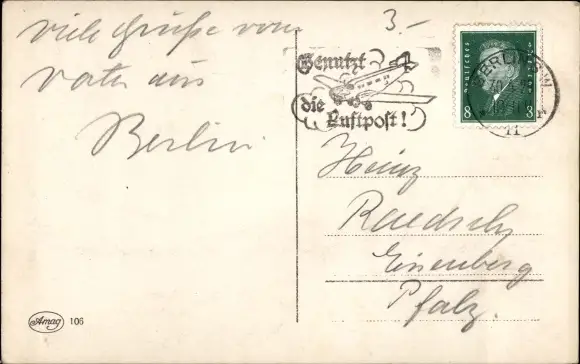 viele Grüße vom
Vater aus
Berlin
3.-
Benutzt
die
Luftpost!
DEUTSCHES
8 8
BERLIN S.W.
11
Heinz
Eisenberg
Pfalz.
Amag 106